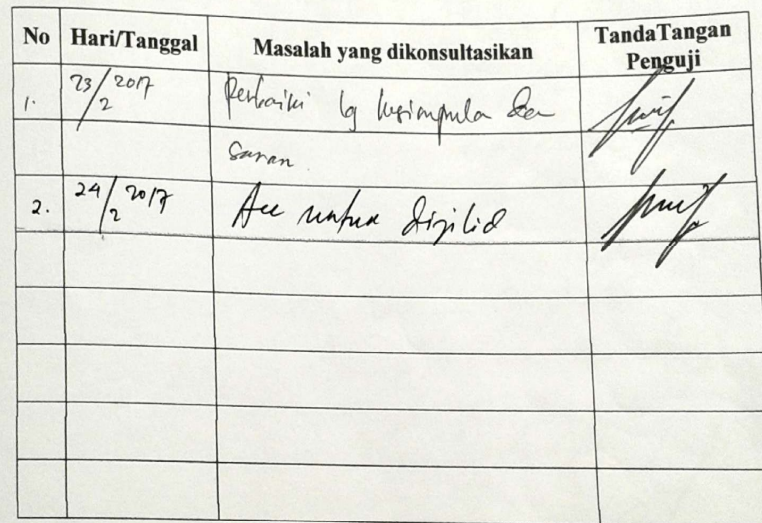 No Hari/Tanggal Masalah yang dikonsultasikan TandaTangan Penguji
1. 23/2 2017 Perbaiki lg kesimpula dan
saran
2. 24/2 2017 Acc untuk dijilid